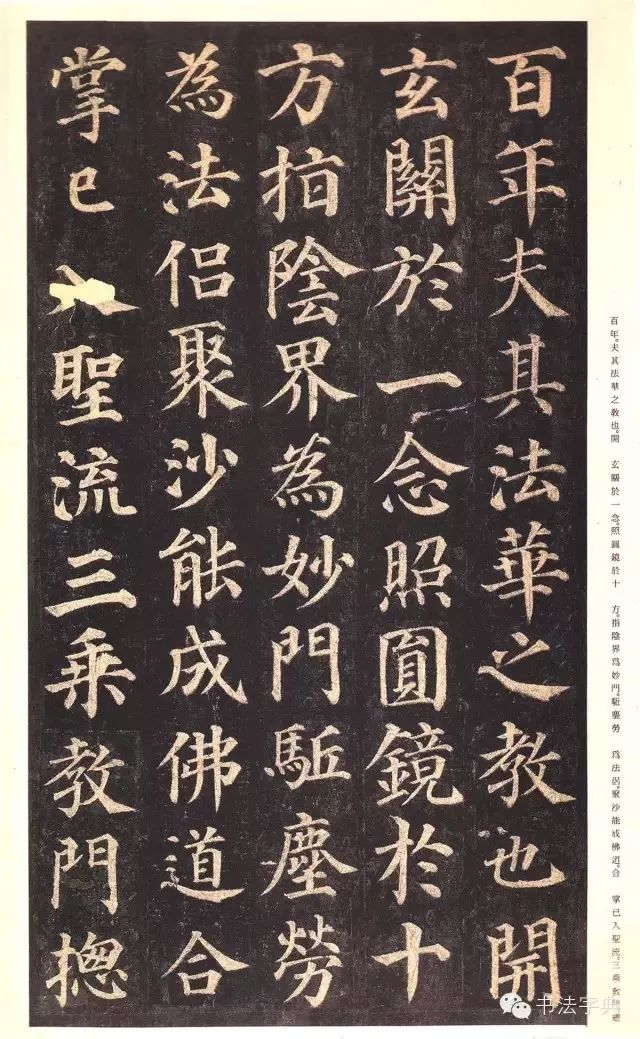 百年夫其法華之教也開
玄關於一念照圓鏡於十
方指陰界為妙門駈塵勞
為法侶聚沙能成佛道合
掌已入聖流三乘教門揔
百年。夫其法華之教也。開
玄關於一念。照圓鏡於十
方。指陰界爲妙門。駈塵勞
爲法侶。聚沙能成佛道。合
掌已入聖流。三乘教門。總
书法字典